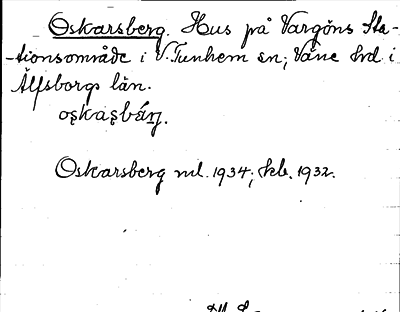 Oskarsberg. Hus på Vargöns Sta-
-tionsområde i V. Tunhem sn; Väne hrd i
Älfsborgs län.
Oskarsberg ml. 1934; kb. 1932.